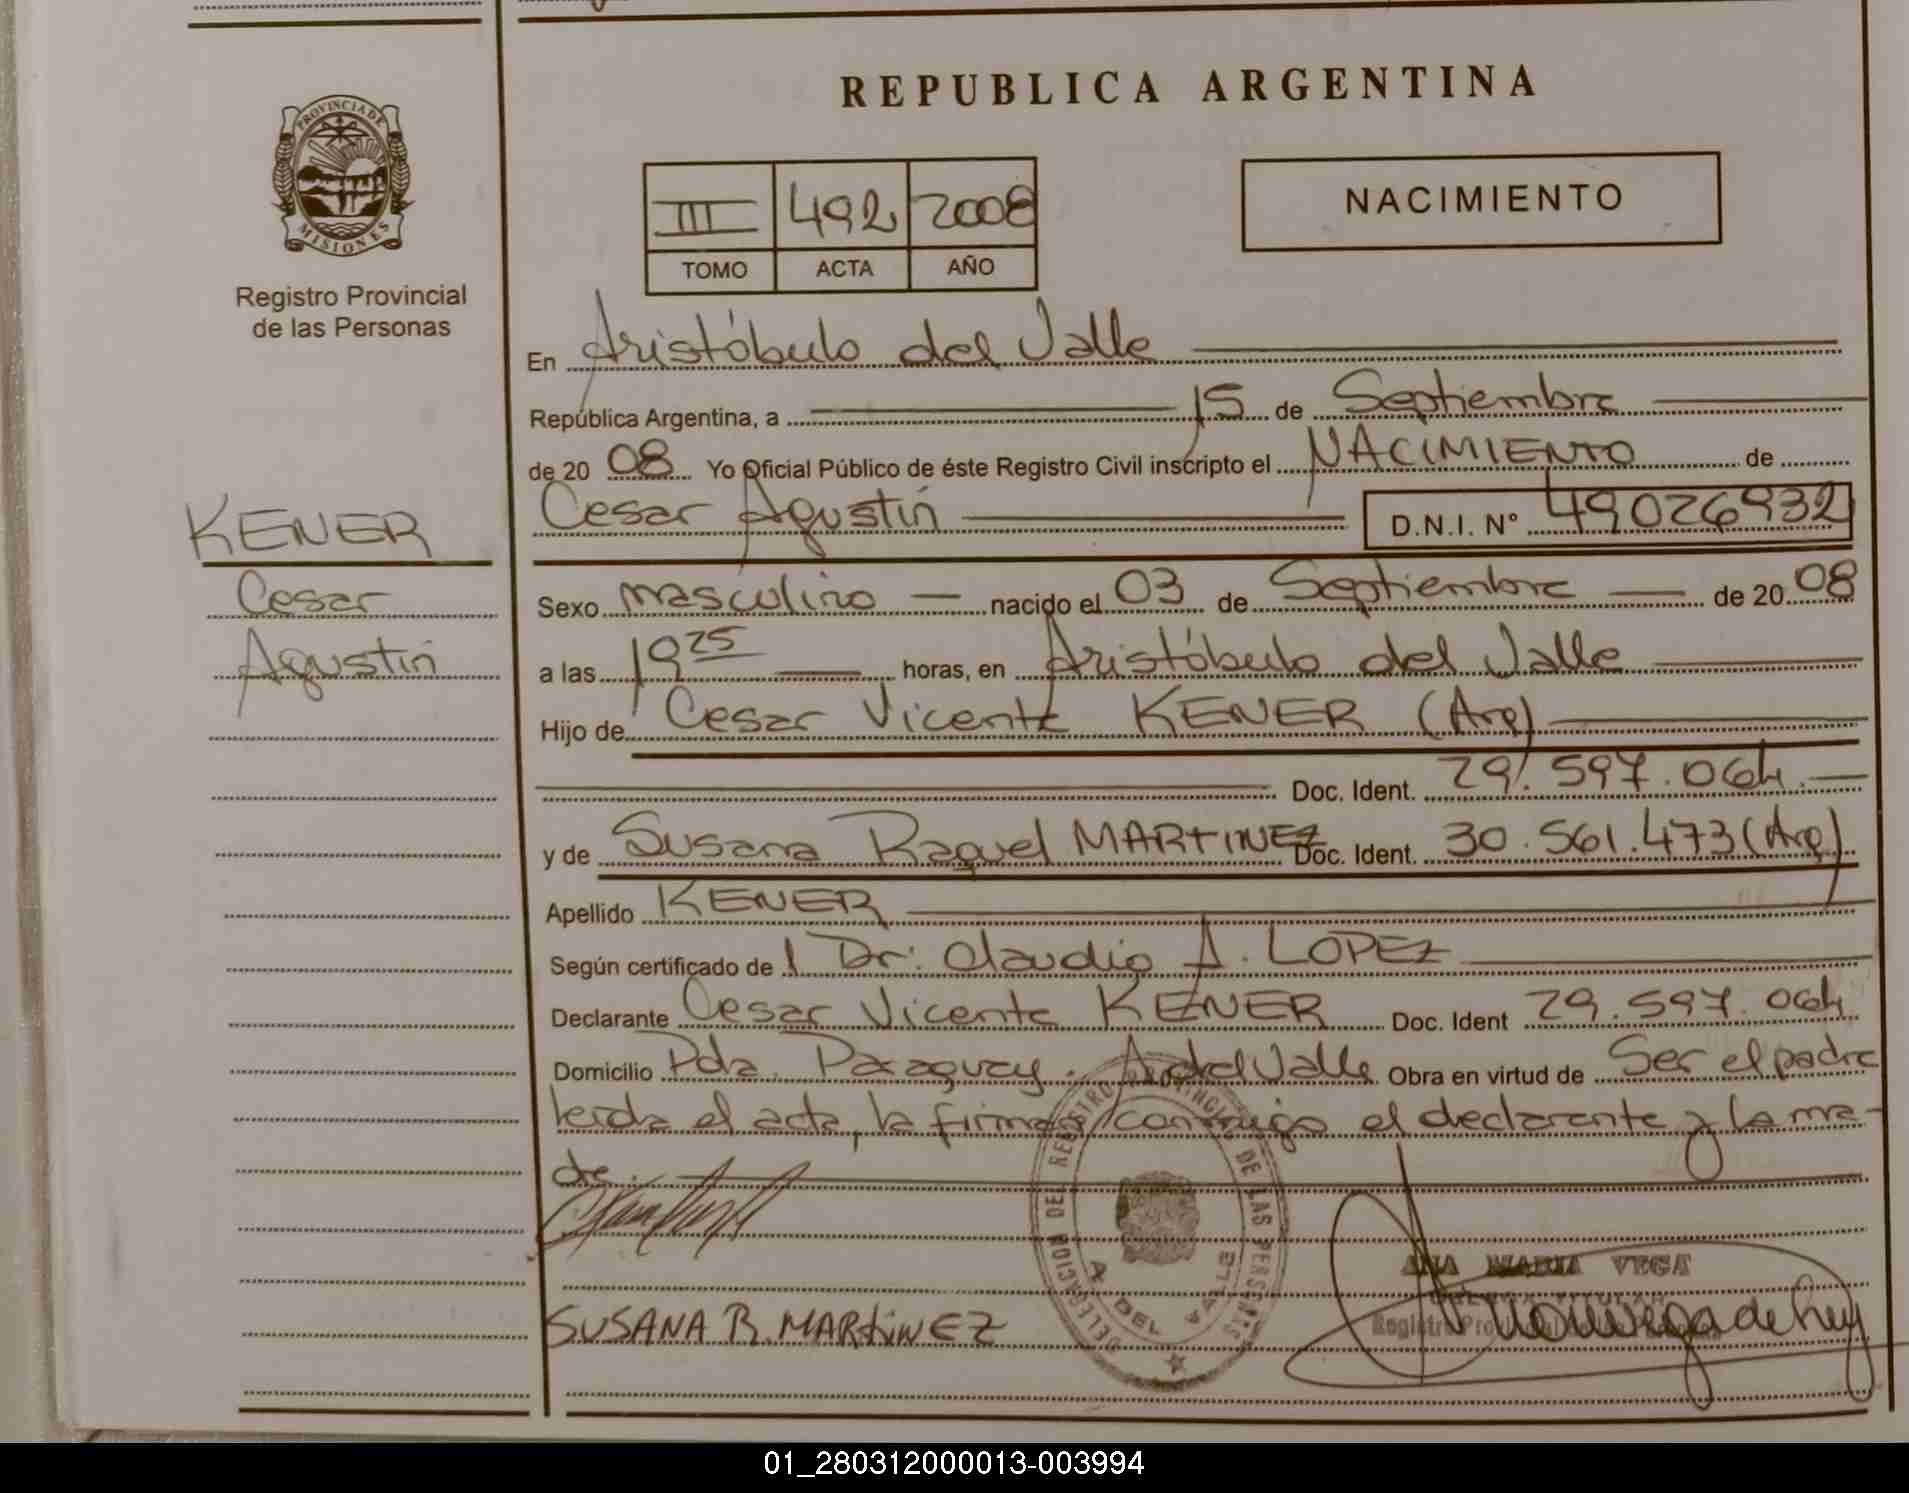 REPUBLICA ARGENTINA
PROVINCIA DE
MISIONES
Registro Provincial
de las Personas
III 492 2008
TOMO ACTA AÑO
NACIMIENTO
En Aristóbulo del Valle
República Argentina, a 15 de Septiembre
de 20 08 Yo Oficial Público de éste Registro Civil inscripto el NACIMIENTO de
Cesar Agustín D.N.I. N° 49026932
KENER
Cesar
Agustín
Sexo masculino nacido el 03 de Septiembre de 20 08
a las 19 25 horas, en Aristóbulo del Valle
Hijo de Cesar Vicente KENER (Arg)
Doc. Ident. 29.597.064
y de Susana Raquel MARTINEZ Doc. Ident. 30.561.473 (Arg)
Apellido KENER
Según certificado de Dr. Claudio A. LOPEZ
Declarante Cesar Vicente KENER Doc. Ident 29.597.064
Domicilio Pda. Paraguay. A. del Valle Obra en virtud de Ser el padre
leída el acta, la firman conmigo el declarante y la ma-
dre.
DELEGACION DEL REGISTRO PROVINCIAL DE LAS PERSONAS
A. DEL VALLE
SUSANA R. MARTINEZ
ANA MARIA VEGA
Registro Provincial
01_280312000013-003994